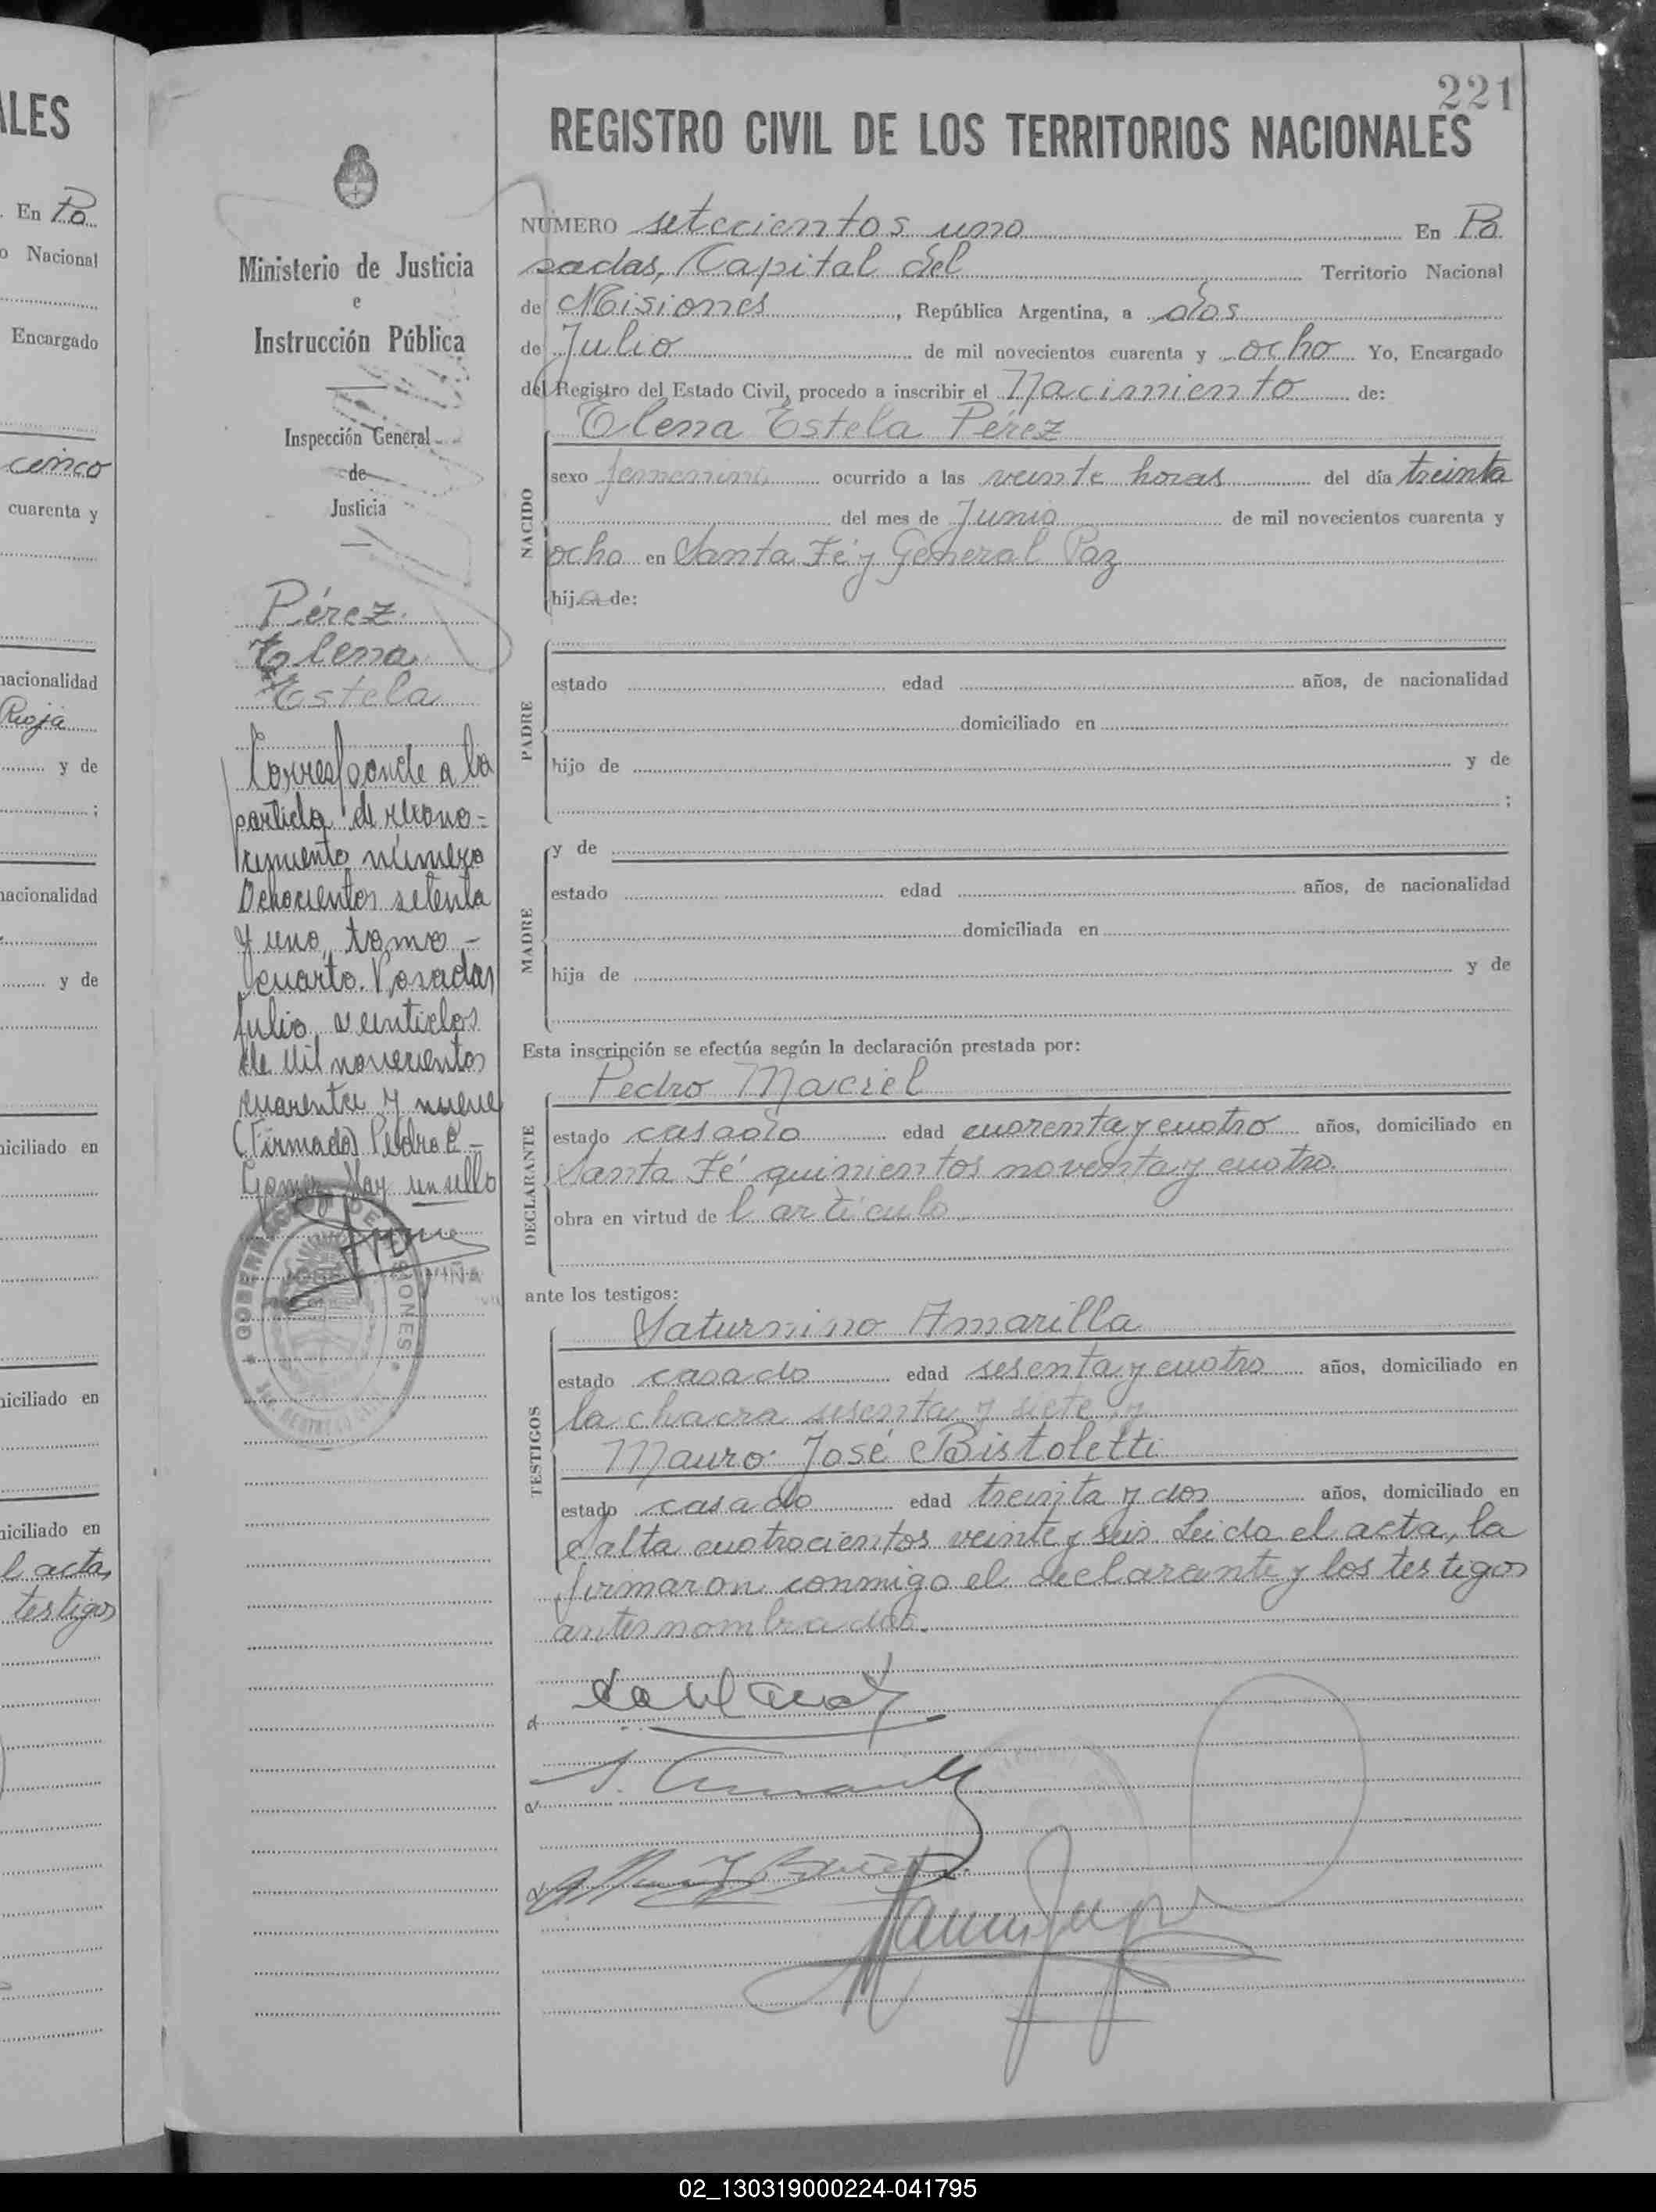 ALES
En Po
o Nacional
Encargado
cinco
cuarenta y
nacionalidad
Rioja
y de
;
nacionalidad
y de
niciliado en
niciliado en
niciliado en
l acta,
testigos
221
REGISTRO CIVIL DE LOS TERRITORIOS NACIONALES
Ministerio de Justicia
e
Instrucción Pública
Inspección General
de
Justicia
Pérez
Elena
Estela
Corresponde a la
partida de recono=
cimiento número
Ochocientos setenta
y uno, tomo -
cuarto. Posadas
Julio veintidos
de mil novecientos
cuarenta y nueve
(Firmado) Pedro E. -
Gomez Hay un sello
GOBERNACION DE MISIONES
NÚMERO setecientos uno En Po
sadas, Capital del Territorio Nacional
de Misiones, República Argentina, a dos
de Julio de mil novecientos cuarenta y ocho Yo, Encargado
del Registro del Estado Civil, procedo a inscribir el Nacimiento de:
Elena Estela Pérez
NACIDO
sexo femenino ocurrido a las veinte horas del día treinta
del mes de Junio de mil novecientos cuarenta y
ocho en Santa Fé y General Paz
hija de:
PADRE
estado edad años, de nacionalidad
domiciliado en
hijo de y de
;
MADRE
y de
estado edad años, de nacionalidad
domiciliada en
hija de y de
Esta inscripción se efectúa según la declaración prestada por:
Pedro Maciel
DECLARANTE
estado casado edad cuarenta y cuatro años, domiciliado en
Santa Fé quinientos noventa y cuatro.
obra en virtud de l artículo
ante los testigos:
Saturnino Amarilla
TESTIGOS
estado casado edad sesenta y cuatro años, domiciliado en
la chacra sesenta y siete y
Mauro José Bistoletti
estado casado edad treinta y dos años, domiciliado en
Salta cuatrocientos veinte y seis. Leida el acta, la
firmaron conmigo el declarante y los testigos
antes nombrados.
02_130319000224-041795